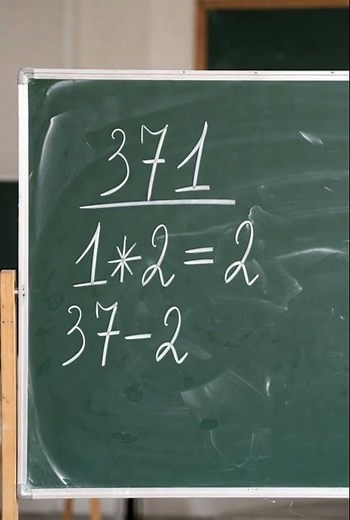 371
1*2=2
37-2